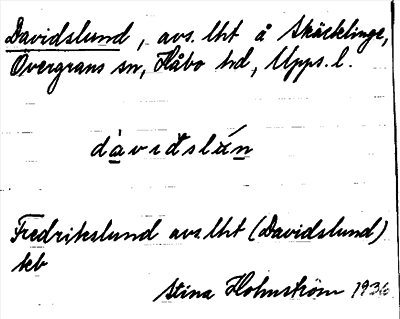 Davidslund, avs. lht å Skäcklinge,
Övergrans sn, Håbo hd, Upps. l.
Fredrikslund avs lht (Davidslund)
kb
Stina Holmström 1936